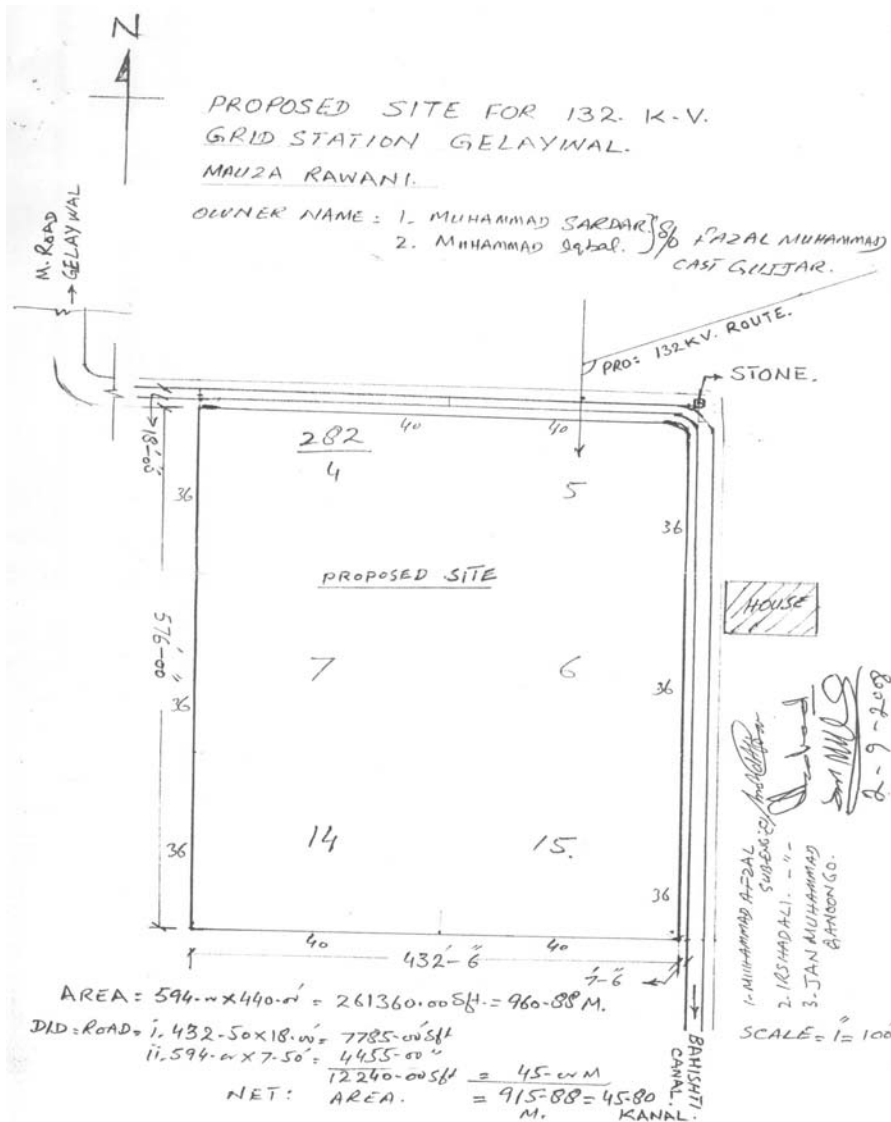 N
PROPOSED SITE FOR 132. K-V.
GRID STATION GELAYWAL.
MAUZA RAWANI.
OWNER NAME: 1. MUHAMMAD SARDAR.
2. MUHAMMAD Iqbal. } S/o FAZAL MUHAMMAD
CAST GUJJAR.
M. ROAD
→ GELAYWAL
PRO: 132KV. ROUTE.
→ STONE.
18'-00"
40 40
282
4
5
36
36
PROPOSED SITE
HOUSE
576'-00"
7
6
36
36
14
15.
36
36
40 40
432'-6"
7'-6
1- MUHAMMAD AFZAL
SUBENGR
2. IRSHAD ALI. -"-
3. JAN MUHAMMAD
QANOONGO.
2-6-2008
AREA = 594.00 x 440.00' = 261360.00 Sft. = 960-88 M.
DID = ROAD = i. 432-50 x 18.00' = 7785-00 Sft
ii. 594.00 x 7-50' = 4455-00 "
12240-00 Sft = 45-00 M
NET: AREA. = 915-88 = 45-80
M. KANAL.
BAHISHTI
CANAL.
SCALE = 1" = 100'